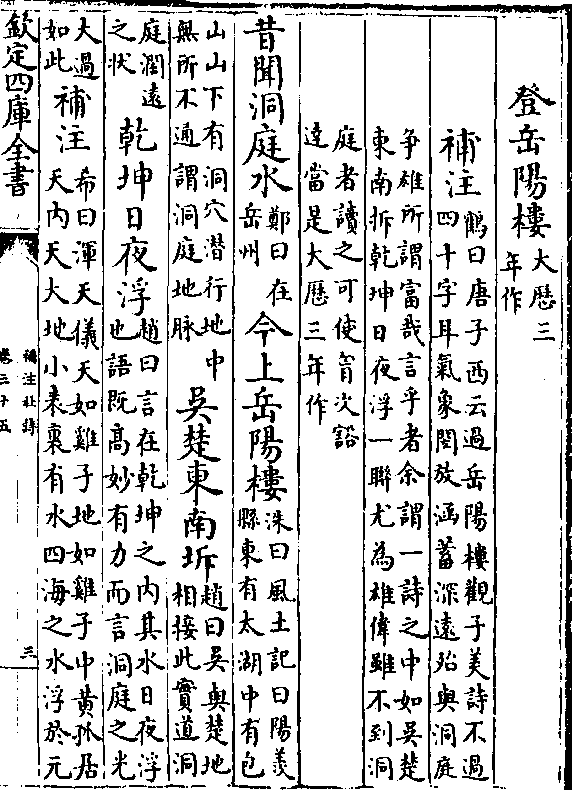 登岳陽樓大歴三年作
補注鶴曰唐子西云過岳陽樓觀子美詩不過四十字耳氣象閎放涵蓄深逺殆與洞庭
争雄所謂富哉言乎者余謂一詩之中如吳楚東南坼乾坤日夜浮一聯尤為雄偉雖不到洞
庭者讀之可使胷次豁達當是大歴三年作
昔聞洞庭水鄭曰在岳州今上岳陽樓洙曰風土記曰陽羡縣東有太湖中有包
山山下有洞穴潜行地中無所不通謂洞庭地脉吳楚東南坼趙曰吳與楚地相接此實道洞
庭濶逺之状乾坤日夜浮趙曰言在乾坤之内其水日夜浮也語既髙妙有力而言洞庭之光
大過如此補注希曰渾天儀天如雞子地如雞子中黄孤居天内天大地小表裏有水四海之水浮於元
欽定四庫全書
補注杜詩
卷三十五
三